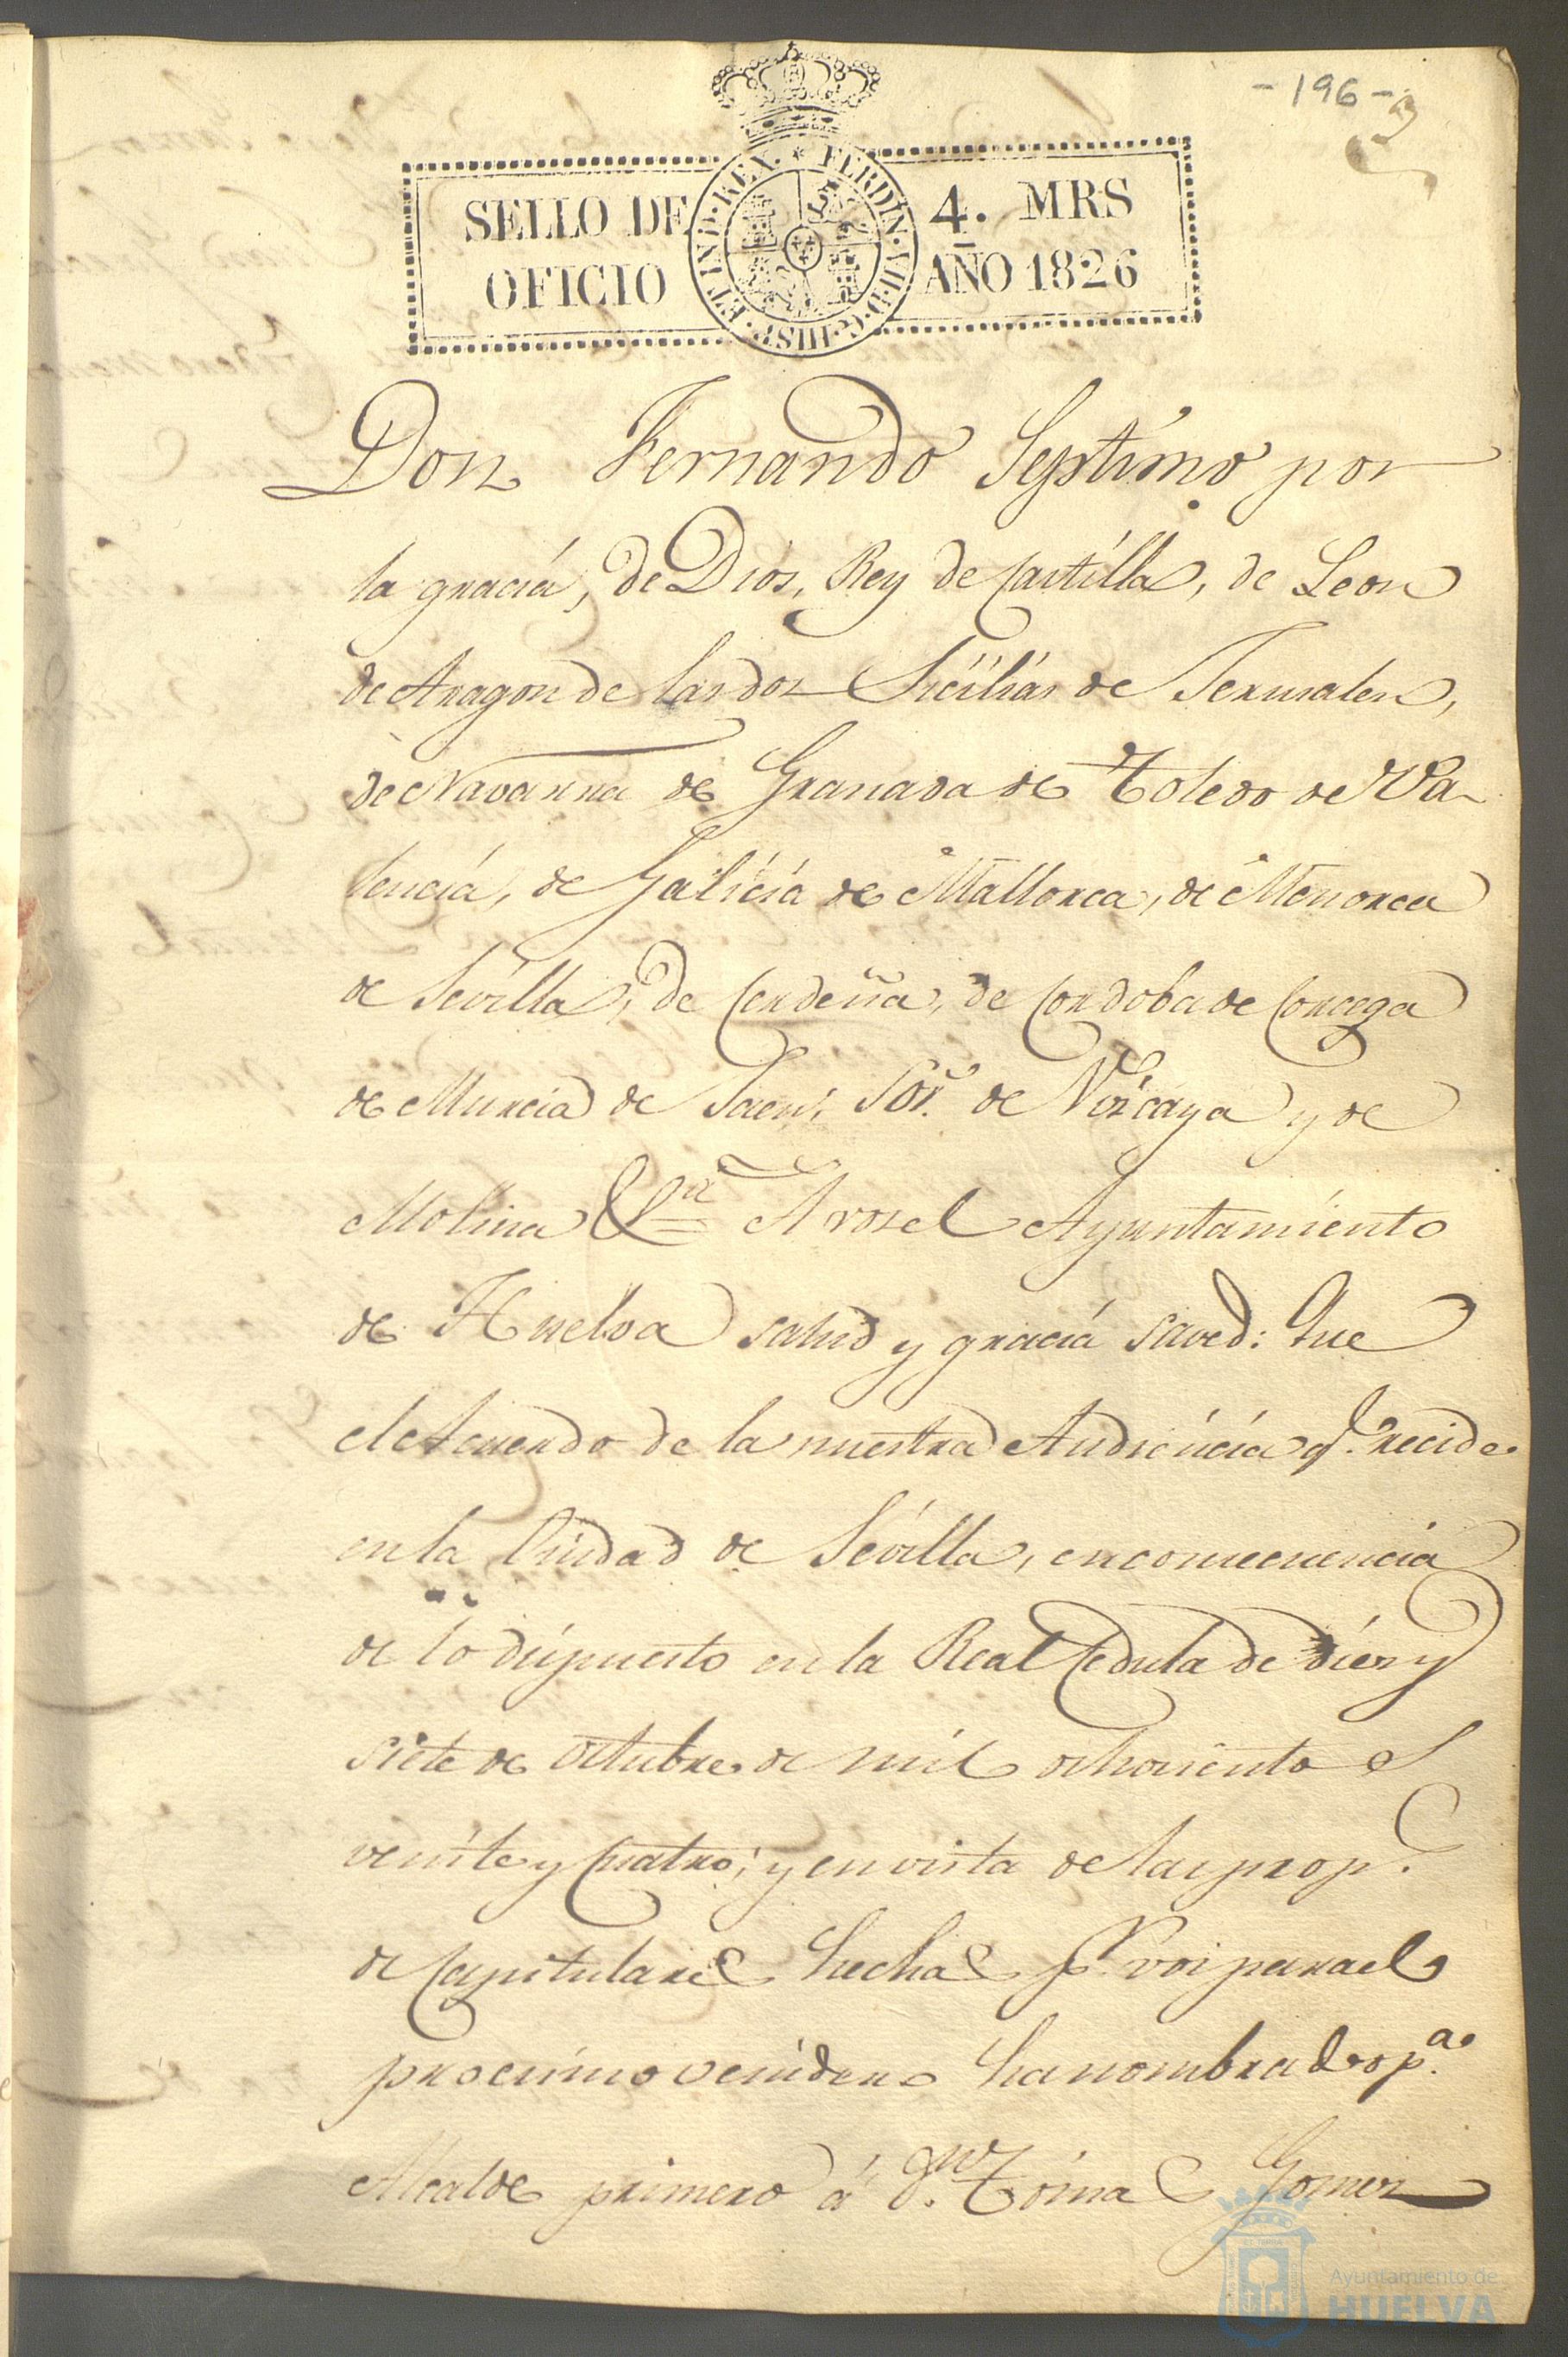 - 196 -
SELLO DE
OFICIO
4. MRS
AÑO 1826
FERDIN. VII. D. G. HISP. ET IND. REX.
Don Fernando Septimo por
la gracia, de Dios, Rey de Castilla, de Leon
de Aragon de las dos Sicilias de Jerusalen,
de Navarra de Granada de Toledo de Va-
lencia, de Galicia de Mallorca, de Menorca
de Sevilla, de Cerdeña, de Cordoba de Corcega
de Murcia de Jaen, Sor. de Vizcaya y de
Molina &ra A vos el Ayuntamiento
de Huelva salud y gracia saved: Que
el Acuerdo de la nuestra Audiencia q.e recide
en la Ciudad de Sevilla, en consecuencia
de lo dispuesto en la Real Cedula de diez y
siete de octubre de mil ochociento s
veinte y Cuatro; y en vista de las prop.s
de Capitulares hechas p.r vos para el
procsimo venidero ha nombrado p.a
Alcalde primero á D.n Tomas Gomez
Ayuntamiento de
HUELVA